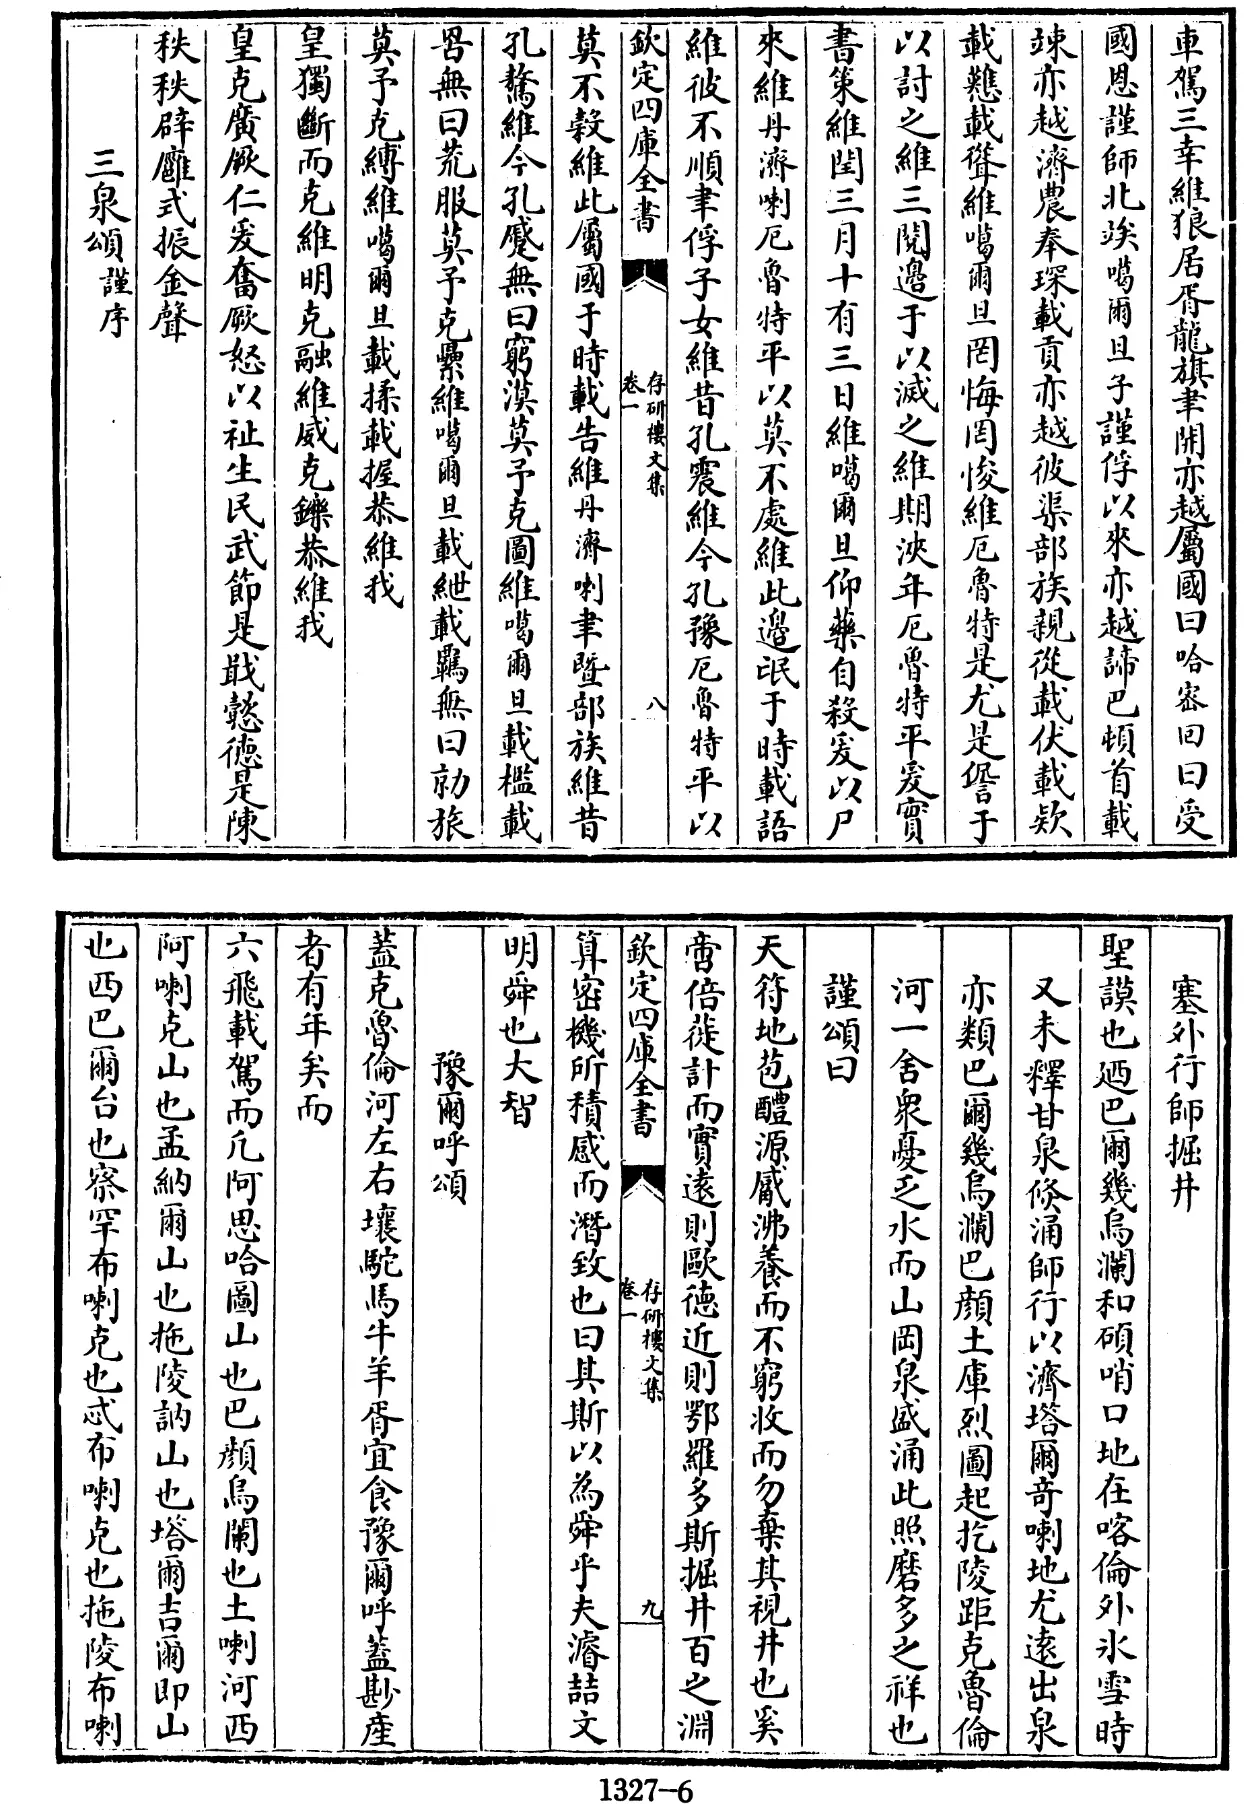 車駕三幸維狼居胥龍旗聿開亦越屬國曰哈密回曰受
國恩謹師北竢噶爾旦子謹俘以來亦越諦巴頓首載
竦亦越濟農奉琛載貢亦越彼渠部族親從載伏載欵
載戁載聳維噶爾旦罔悔罔悛維厄魯特是尤是偺于
以討之維三閱邊于以滅之維期浹年厄魯特平爰實
書策維閏三月十有三日維噶爾旦仰藥自殺爰以尸
來維丹濟喇厄魯特平以莫不處維此邊氓于時載語
維彼不順聿俘子女維昔孔震維今孔豫厄魯特平以
欽定四庫全書
存研樓文集
卷一
八
莫不穀維此屬國于時載告維丹濟喇聿暨部族維昔
孔驁維今孔蹙無曰窮漠莫予克圖維噶爾旦載檻載
罟無曰荒服莫予克纍維噶爾旦載紲載羈無曰勍旅
莫予克縛維噶爾旦載揉載握恭維我
皇獨斷而克維明克融維威克鑠恭維我
皇克廣厥仁爰奮厥怒以祉生民武節是戢懿德是陳
秩秩辟廱式振金聲
三泉頌謹序
塞外行師掘井
聖謨也廼巴爾幾烏瀾和碩哨口地在喀倫外氷雪時
又未釋甘泉倐涌師行以濟塔爾奇喇地尤遠出泉
亦類巴爾幾烏瀾巴顔土庫烈圖起扢陵距克魯倫
河一舍衆憂乏水而山岡泉盛涌此照磨多之祥也
謹頌曰
天符地苞醴源觱沸養而不窮收而勿棄其視井也奚
啻倍蓰計而實遠則歐德近則鄂羅多斯掘井百之淵
欽定四庫全書
存研樓文集
卷一
九
算密機所積感而潛致也曰其斯以為舜乎夫濬喆文
明舜也大智
豫爾呼頌
葢克魯倫河左右壤駝馬牛羊胥宜食豫爾呼葢尠産
者有年矣而
六飛載駕而凢阿思哈圖山也巴顔烏闌也土喇河西
阿喇克山也孟納爾山也拖陵訥山也塔爾吉爾即山
也西巴爾台也察罕布喇克也忒布喇克也拖陵布喇
1327-6